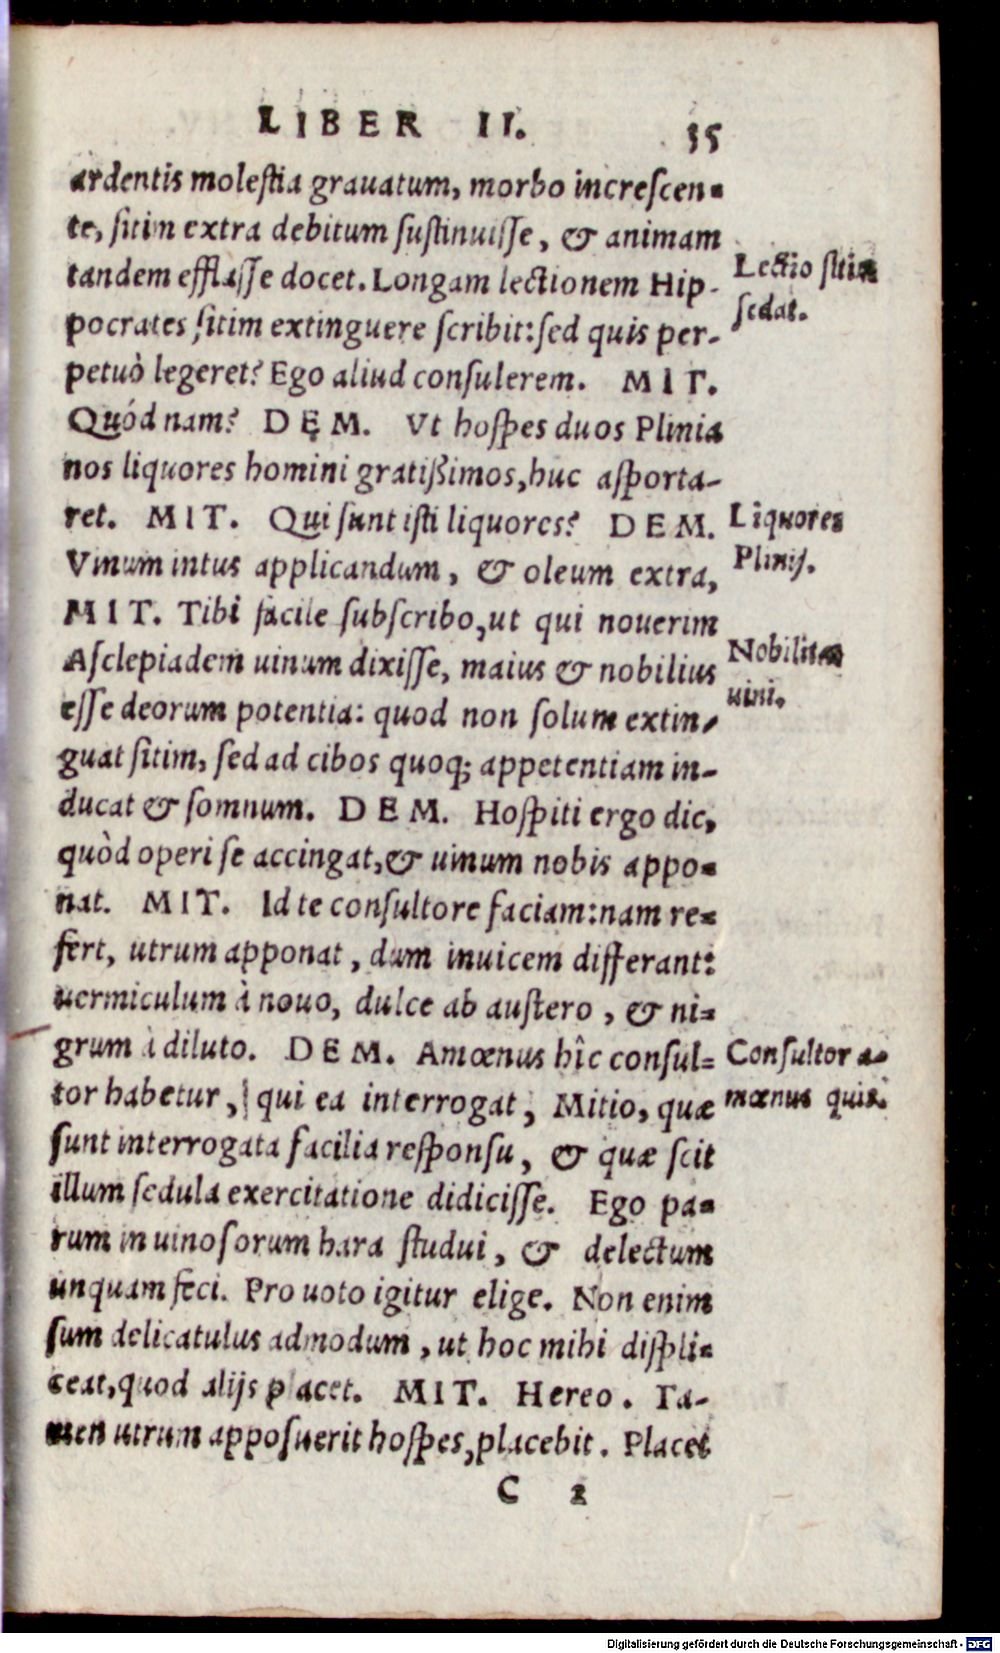 LIBER II. 35
ardentis molestia grauatum, morbo increscen-
te, sitim extra debitum sustinuisse, & animam
tandem efflasse docet. Longam lectionem Hip-
pocrates sitim extinguere scribit: sed quis per-
petuò legeret? Ego aliud consulerem. MIT.
Quód nam? DEM. Vt hospes duos Plinia
nos liquores homini gratißimos, huc asporta-
ret. MIT. Qui sunt isti liquores? DEM.
Vinum intus applicandum, & oleum extra,
MIT. Tibi facile subscribo, ut qui nouerim
Asclepiadem uinum dixisse, maius & nobilius
esse deorum potentia: quod non solum extin-
guat sitim, sed ad cibos quoq; appetentiam in-
ducat & somnum. DEM. Hospiti ergo dic,
quòd operi se accingat, & uinum nobis appo-
nat. MIT. Id te consultore faciam: nam re-
fert, utrum apponat, dum inuicem differant:
uermiculum à nouo, dulce ab austero, & ni-
grum à diluto. DEM. Amœnus hîc consul-
tor habetur, qui ea interrogat, Mitio, quæ
sunt interrogata facilia responsu, & quæ scit
illum sedula exercitatione didicisse. Ego pa-
rum in uinosorum hara studui, & delectum
unquam feci. Pro uoto igitur elige. Non enim
sum delicatulus admodum, ut hoc mihi displi-
ceat, quod alijs placet. MIT. Hereo. Ta-
men utrum apposuerit hospes, placebit. Placet
C 2
Lectio sitim
sedat.
Liquores
Plinij.
Nobilitas
uini.
Consultor a-
mœnus quis.
Digitalisierung gefördert durch die Deutsche Forschungsgemeinschaft - DFG